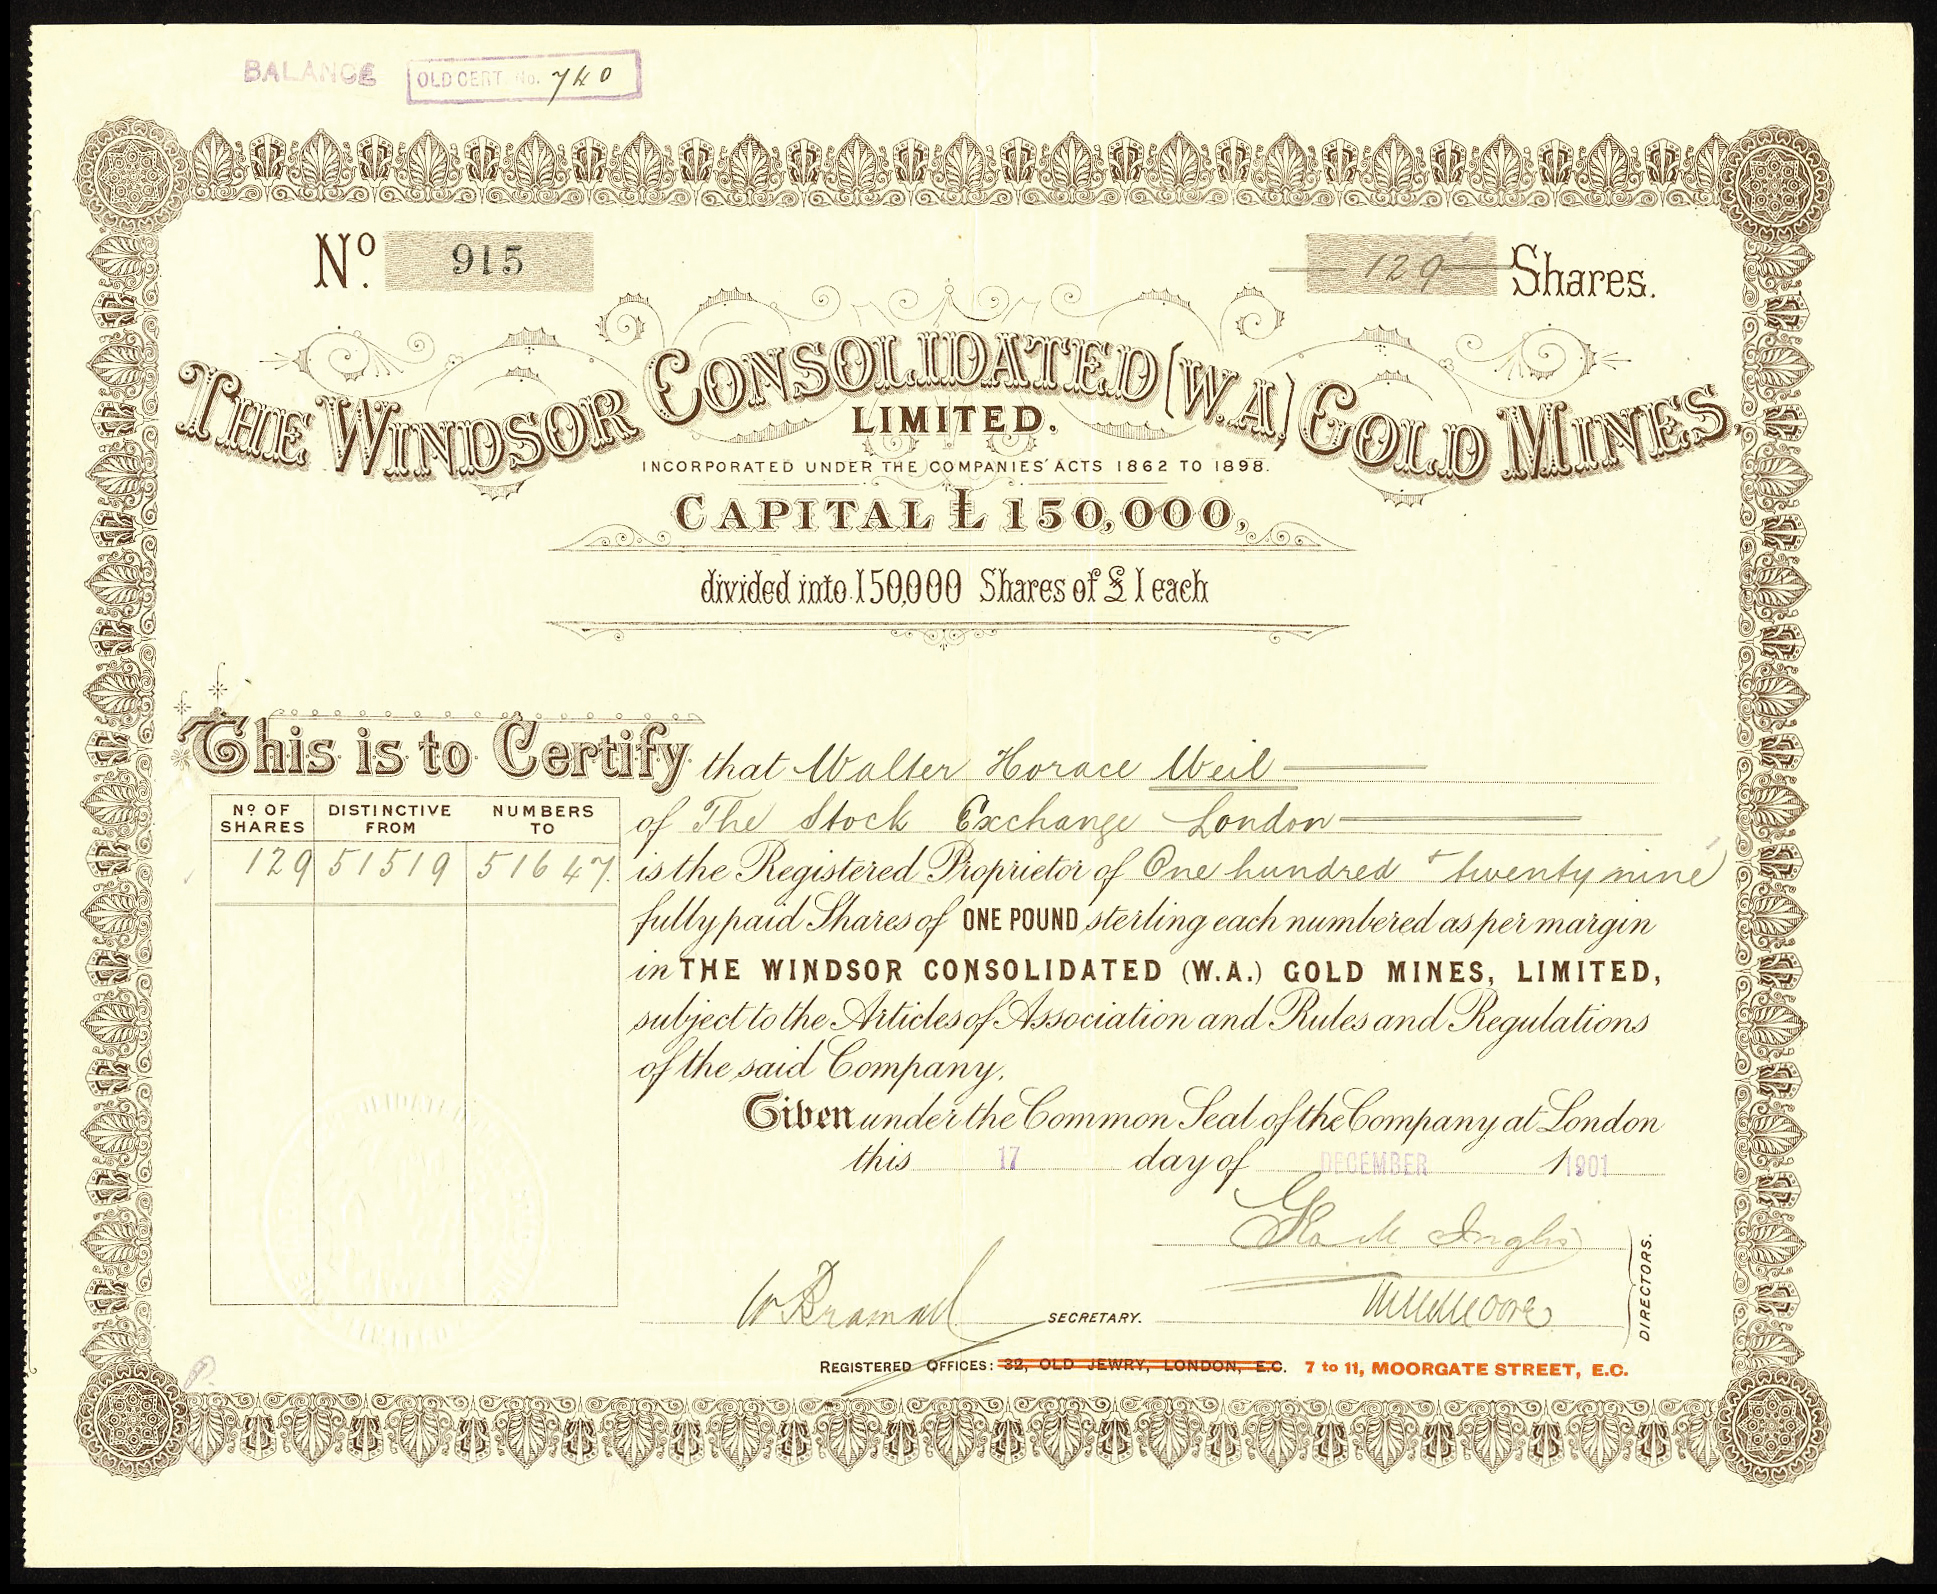 BALANCE OLD CERT No. 740
No. 915 129 Shares.
THE WINDSOR CONSOLIDATED (W.A.) GOLD MINES,
LIMITED.
INCORPORATED UNDER THE COMPANIES' ACTS 1862 TO 1898.
CAPITAL £150,000,
divided into 150,000 Shares of £1 each
This is to Certify that Walter Horace Weil
of The Stock Exchange London
is the Registered Proprietor of One hundred + twenty nine
fully paid Shares of ONE POUND sterling each numbered as per margin
in THE WINDSOR CONSOLIDATED (W.A.) GOLD MINES, LIMITED,
subject to the Articles of Association and Rules and Regulations
of the said Company.
Given under the Common Seal of the Company at London
this 17 day of DECEMBER 1901
No. OF SHARES DISTINCTIVE FROM NUMBERS TO
129 51519 51647
Inglis
W Bramall SECRETARY. Moore
DIRECTORS.
REGISTERED OFFICES: 32, OLD JEWRY, LONDON, E.C. 7 to 11, MOORGATE STREET, E.C.
LIMITED